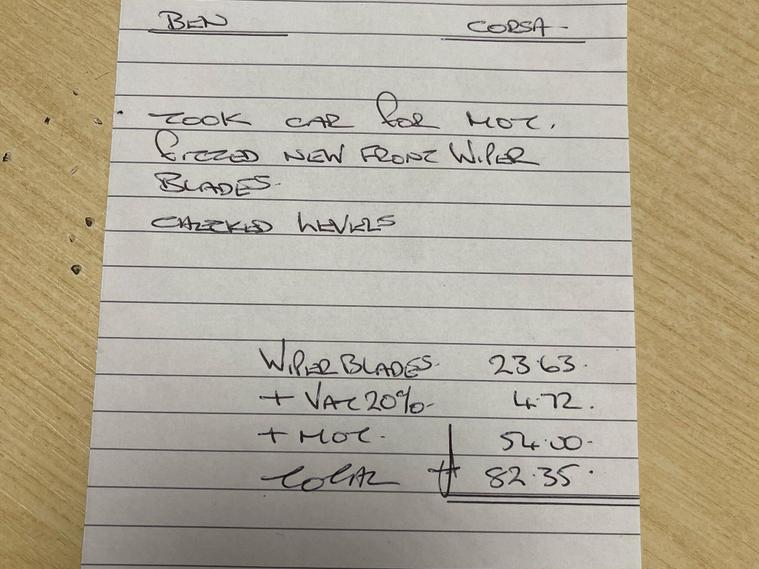 BEN CORSA-
TOOK CAR FOR MOT.
FITTED NEW FRONT WIPER
BLADES-
CHECKED LEVELS
WIPER BLADES. 23.63.
+ VAT 20%- 4.72.
+ MOT. 54.00-
TOTAL 82.35.